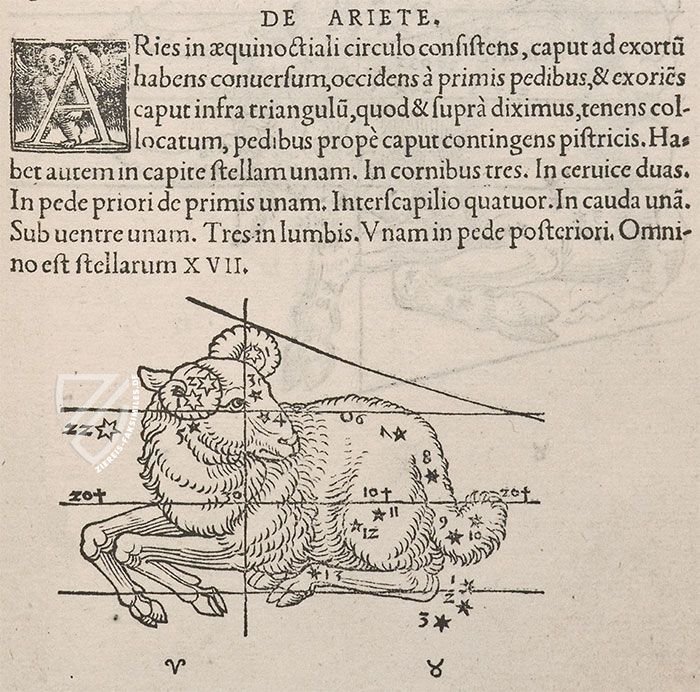 DE ARIETE.
ARies in æquinoctiali circulo consistens, caput ad exortũ
habens conuersum, occidens à primis pedibus, & exoriẽs
caput infra triangulũ, quod & suprà diximus, tenens col-
locatum, pedibus propè caput contingens pistricis. Ha-
bet autem in capite stellam unam. In cornibus tres. In ceruice duas.
In pede priori de primis unam. Interscapilio quatuor. In cauda unã.
Sub uentre unam. Tres in lumbis. Vnam in pede posteriori. Omni-
no est stellarum XVII.
3
4
06
7
22
8
20† 30 10† 20†
11
12
9
10
13
1
2
3
♈ ♉
ZIEREIS-FAKSIMILES.DE